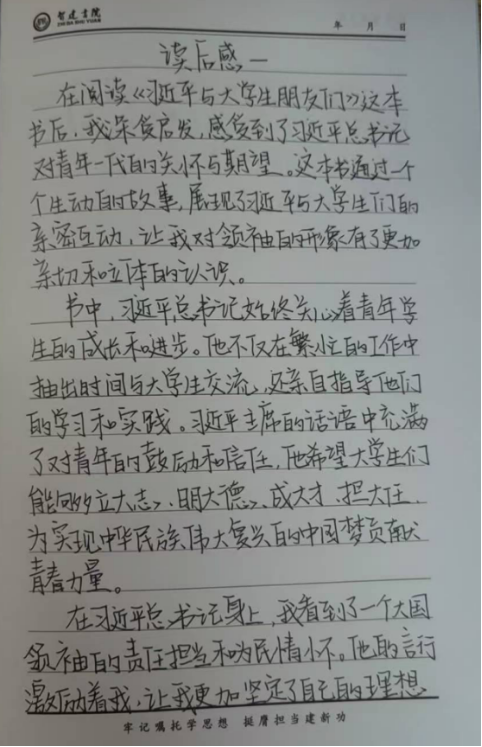 智建书院
ZHI JIAN SHU YUAN
年 月 日
读后感一
在阅读《习近平与大学生朋友们》这本
书后,我深受启发,感受到了习近平总书记
对青年一代的关怀与期望。这本书通过一个
个生动的故事,展现了习近平与大学生们的
亲密互动,让我对领袖的形象有了更加
亲切和立体的认识。
书中,习近平总书记始终关心着青年学
生的成长和进步。他不仅在繁忙的工作中
抽出时间与大学生交流,还亲自指导他们
的学习和实践。习近平主席的话语中充满
了对青年的鼓励和信任,他希望大学生们
能够立大志、明大德、成大才、担大任,
为实现中华民族伟大复兴的中国梦贡献
青春力量。
在习近平总书记身上,我看到了一个大国
领袖的责任担当和为民情怀。他的言行
激励着我,让我更加坚定了自己的理想
牢记嘱托学思想 挺膺担当建新功